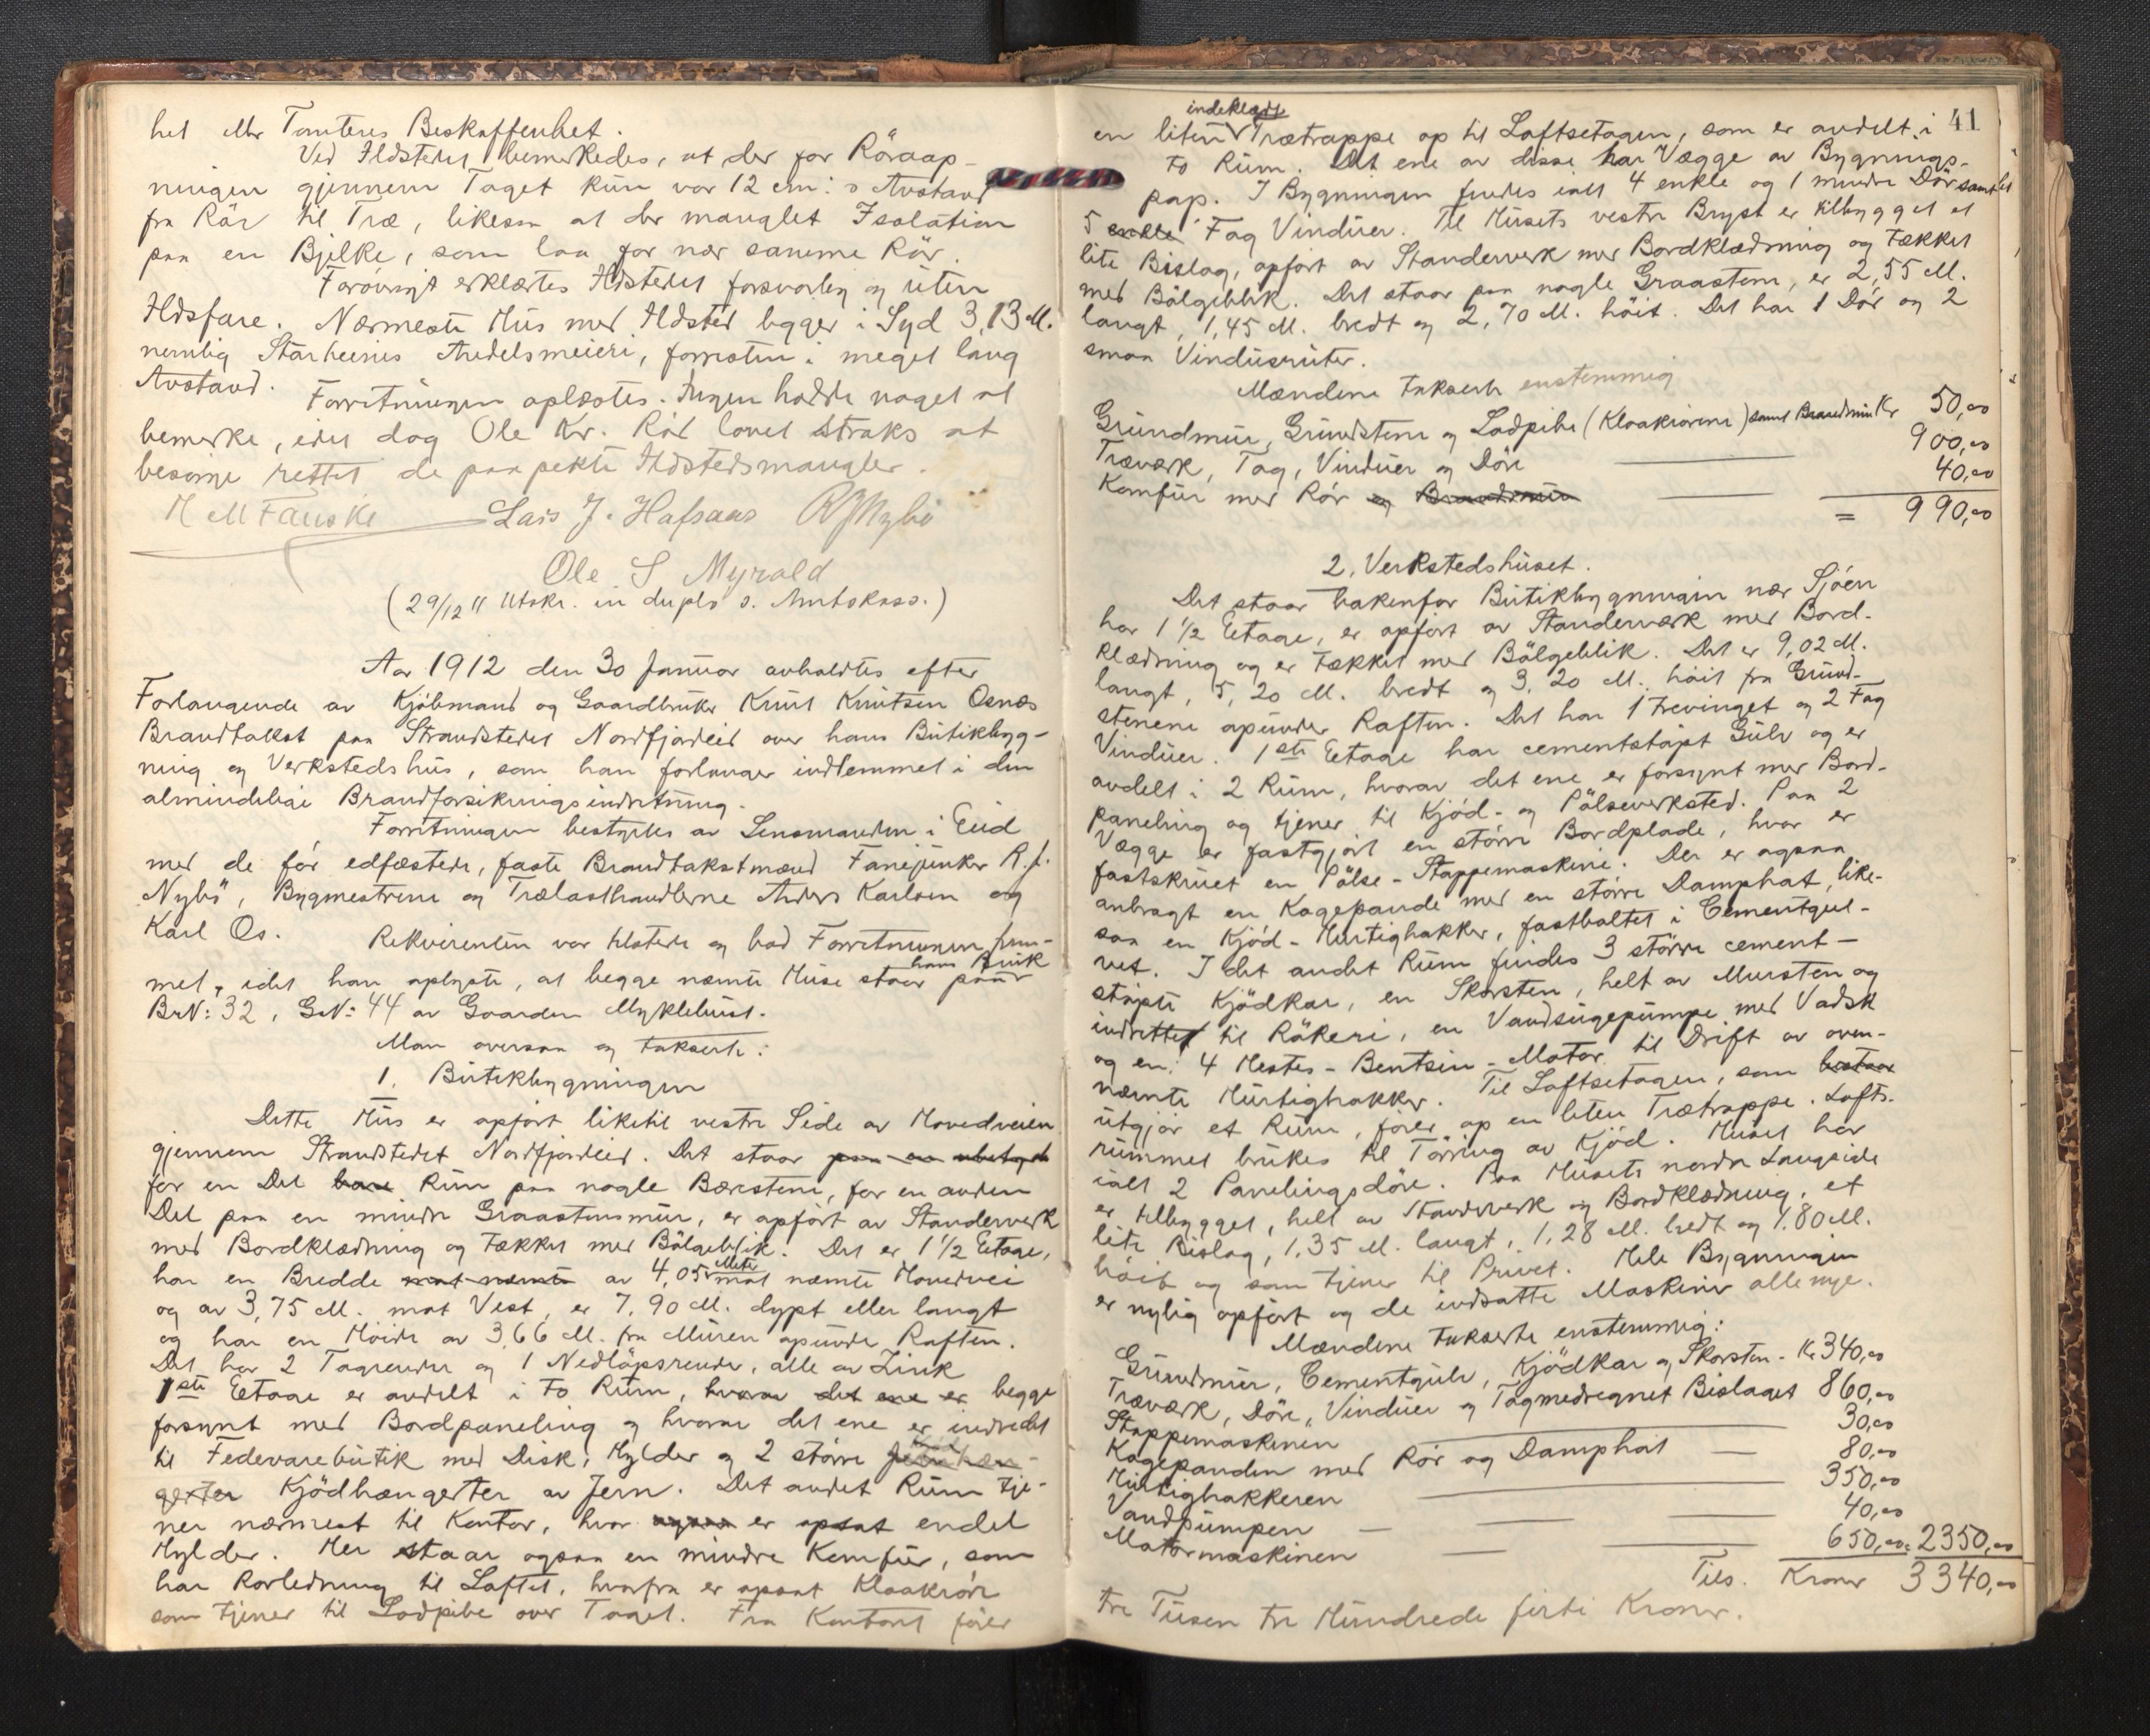 het eller Tomteres Beskaffenhet.
Ved Ildstedet bemerkedes, at der for Röraap-
ningen gjennem Taget kun var 12 cm:s Avstand
fra Rör til Træ, likesaa at der manglet Isolation
paa en Bjelke, som laa for nær samme Rör.
Forövrigt erklærtes Ildstedet forsvarlig og uten
Ildsfare. Nærmeste Hus med Ildsted ligger i Syd 3,13 M.
nemlig Starheims Andelsmeieri, forresten i meget lang
Avstand.
Forretningen oplæstes. Ingen hadde noget at
bemerke, idet dog Ole Kr. Röd lovet straks at
besörge rettet de paapekte Ildstedsmangler.
M M Fauske Lars J. Hafsaas R J Nybö
Ole S Myrold
(29/12 11 Utskr. in duplo s. Amtskass.)
Aar 1912 den 30 Januar avholdtes efter
Forlangende av Kjöbmand og Gaardbruker Knut Knutsen Osnæs
Brandtakst paa Strandstedet Nordfjordeid over hans Butikbyg-
ning og Verkstedshus, som han forlanger indlemmet i den
almindelige Brandforsikringsindretning.
Forretningen bestyrtes av Lensmanden i Eid
med de för edfæstede, faste Brandtakstmænd Fanejunker R. J.
Nybö, Bygmestrene og Trælasthandlerne Anders Karlsen og
Karl Os.
Rekvirenten var tilstede og bad Forretningen frem-
met, idet han oplyste, at begge nemte Huse staar paa hans Bruk
BrN: 32, GN: 44 av Gaarden Myklebust.
Man oversaa og takserte:
1. Butikbygningen
Dette Hus er opfört liketil vestre Side av Hovedveien
gjennem Strandstedet Nordfjordeid. Det staar paa en ubetyde
for en Del bare Rum paa nogle Bærestene, for en anden
Del paa en mindre Graastensmur, er opfört av Standerverk
med Bordklædning og tækket med Bölgeblik. Det er 1 1/2 Etage,
har en Bredde mot nemte av 4,05 Meter mot nemte Hovedvei
og av 3,75 M. mot Vest, er 7,90 M. dypt eller langt
og har en Höide av 3,66 M. fra Muren opunder Raften.
Det har 2 Tagrender og 1 Nedlöpsrende, alle av Zink
1ste Etage er avdelt i to Rum, hvorav det ene er begge
forsynt med Bordpaneling og hvorav det ene er indredet
til Fedevarebutik med Disk, Hylder og 2 större
Kjödhængester av Jern. Det andet Rum tje-
ner nærmest til Kontor, hvor ogsaa er opsat endel
Hylder. Her staar ogsaa en mindre Komfur, som
har Rorledning til Loftet, hvorfra er opsat Kloakrör
som tjener til Lodpibe over Taget. Fra Kontoret förer
41
indeklædt
en liten Trætrappe op til Loftsetagen, som er avdelt i
to Rum. Det ene av disse har Vægge av Bygnings-
pap. I Bygningen findes ialt 4 enkle og 1 mindre Dör samt
5 enkle Fag Vinduer. Til Husets vestre Bryst er tilbygget et
lite Bislag, opfört av Standerverk med Bordklædning og tækket
med Bölgeblik. Det staar paa nogle Graastene, er 2,55 M.
langt, 1,45 M. bredt og 2,70 M. höit. Det har 1 Dör og 2
smaa Vindusruter.
Mændene takserte enstemmig
Grundmur, Grundstene og Lodpibe (Kloakrörene) samt Brandmur Kr 50,00
Træverk, Tag, Vinduer og Döre 900,00
Komfur med Rör og Brandmur 40,00
= 990,00
2. Verkstedshuset.
Det staar bakenfor Butikbygningen nær Sjöen
har 1 1/2 Etage, er opfört av Standerværk med Bord-
klædning og er tækket med Bölgeblik. Det er 9,02 M.
langt, 5,20 M. bredt og 3,20 M. höit fra Grund-
stenene opunder Raften. Det har 1 trevinget og 2 Fag
Vinduer. 1ste Etage har cementstöpt Gulv og er
avdelt i 2 Rum, hvorav det ene er forsynt med Bord-
paneling og tjener til Kjöd- og Pölseverksted. Paa 2
Vægge er fastgjort en större Bordplade, hvor er
fastskruet en Pölse-Stappemaskine. Der er ogsaa
anbragt en Kogepande med en större Damphat, like-
saa en Kjöd-Hurtighakker, fastboltet i Cementgul-
vet. I det andet Rum findes 3 större cement-
stöpte Kjödkar, en Skorsten, helt av Mursten og
indrettet til Rökeri, en Vandsugepumpe med Vadsk
og en 4 Hestes-Bentsin-Motor til Drift av oven-
nemte Hurtighakker. Til Loftsetagen, som bestaar
utgjör et Rum, förer op en liten Trætrappe. Lofts-
rummet brukes til Törring av Kjöd. Huset har
ialt 2 Panelingsdöre. Paa Husets nordre Langside
er tilbygget, helt av Standerverk og Bordklædning, et
lite Bislag, 1,35 M. langt, 1,28 M. bredt og 1,80 M.
höit og som tjener til Privet. Hele Bygningen
er nylig opfört og de indsatte Maskiner alle nye.
Mændene takserte enstemmig:
Grundmur, Cementgulv, Kjödkar og Skorsten - Kr 340,00
Træværk, Döre, Vinduer og Tag medregnet Bislaget 860,00
Stappemaskinen 30,00
Kogepanden med Rör og Damphat 80,00
Hurtighakkeren 350,00
Vandpumpen 40,00
Motormaskinen 650,00 = 2350,00
Tils. Kroner 3340,00
tre Tusen tre Hundrede förti Kroner.